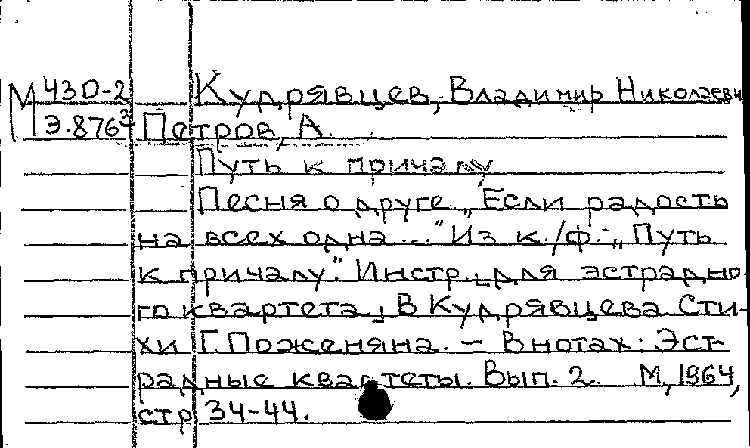 М 43D-2 Кудрявцев, Владимир Николаевич
Э.876³ Петров, А.
Путь к причалу
Песня о друге „Если радость
на всех одна..." Из к./ф.: „Путь
к причалу". Инстр. для эстрадно-
го квартета, В Кудрявцева. Сти-
хи Г. Поженяна. — В нотах: Эст-
радные квартеты. Вып. 2. М, 1964,
стр 34-44.